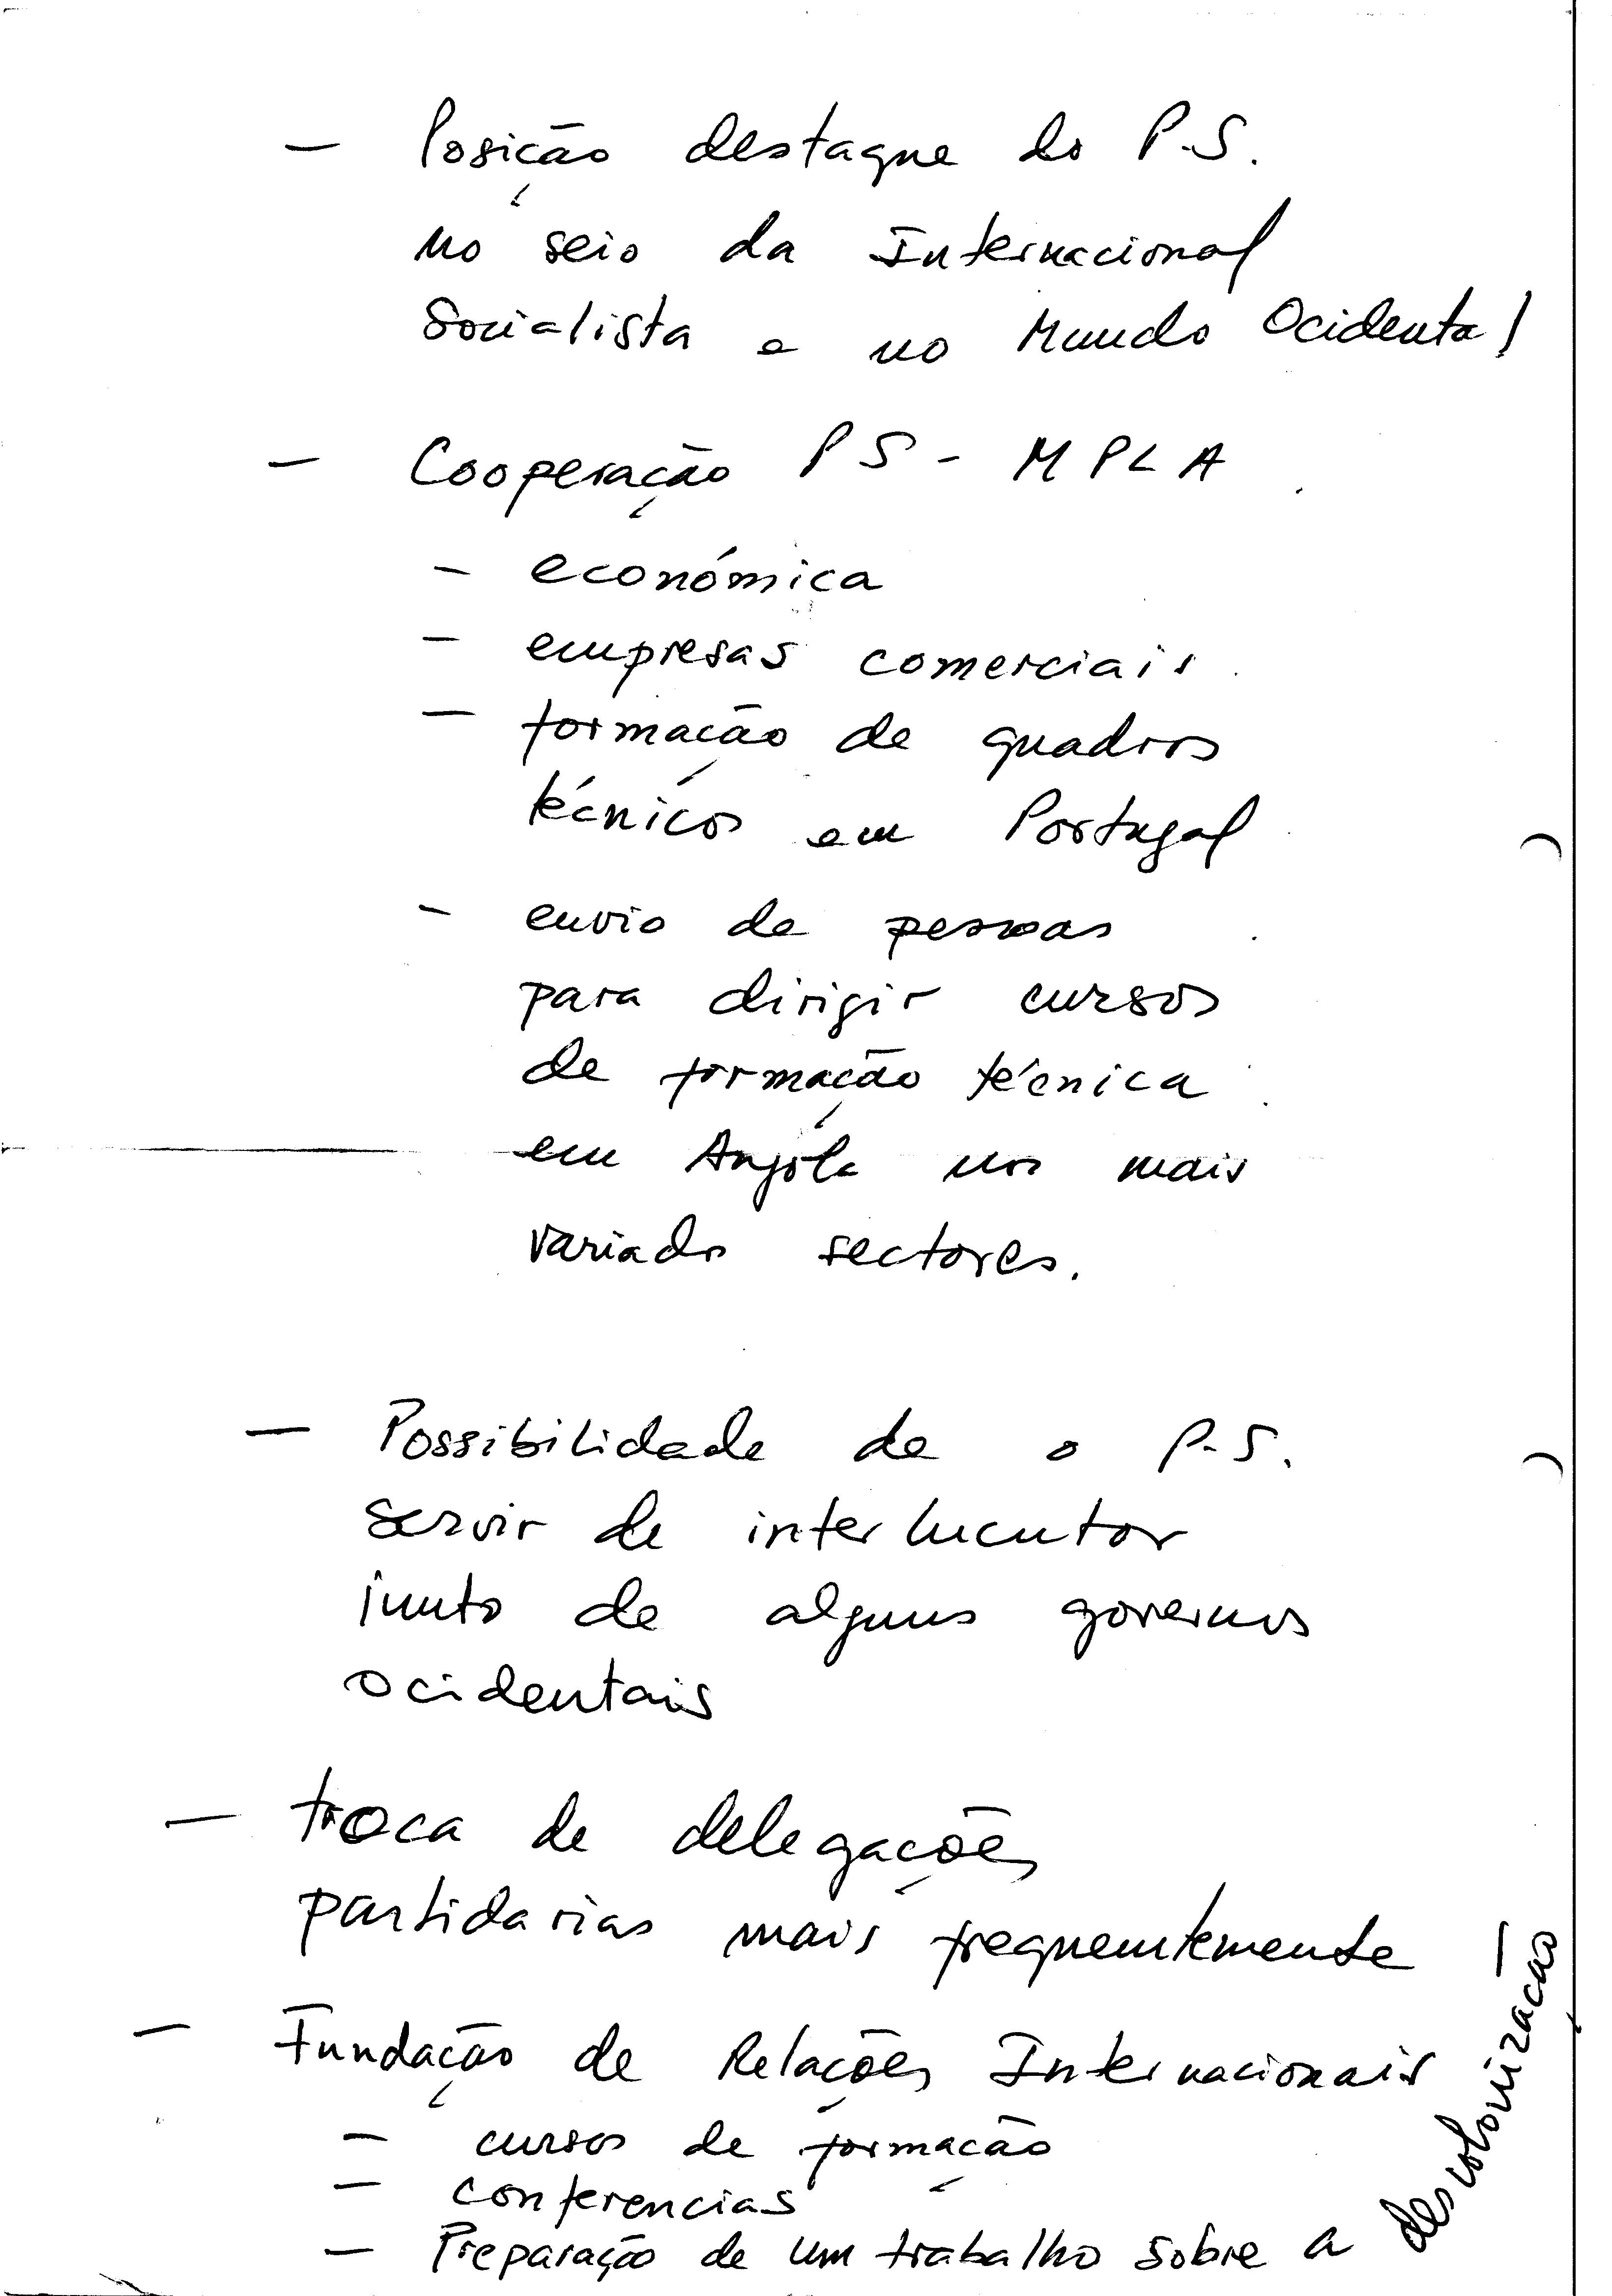 — Posição destaque do P.S.
no seio da Internacional
Socialista e no Mundo Ocidental
— Cooperação PS - MPLA
- económica
- empresas comerciais
- formação de quadros
técnicos em Portugal
- envio de pessoas
para dirigir cursos
de formação técnica
em Angola nos mais
variados sectores.
— Possibilidade de o P.S.
servir de interlucutor
junto de alguns governos
ocidentais
— troca de delegações
partidarias mais frequentemente
— Fundação de Relações Internacionais
- cursos de formação
- conferencias
- Preparação de um trabalho sobre a descolonização